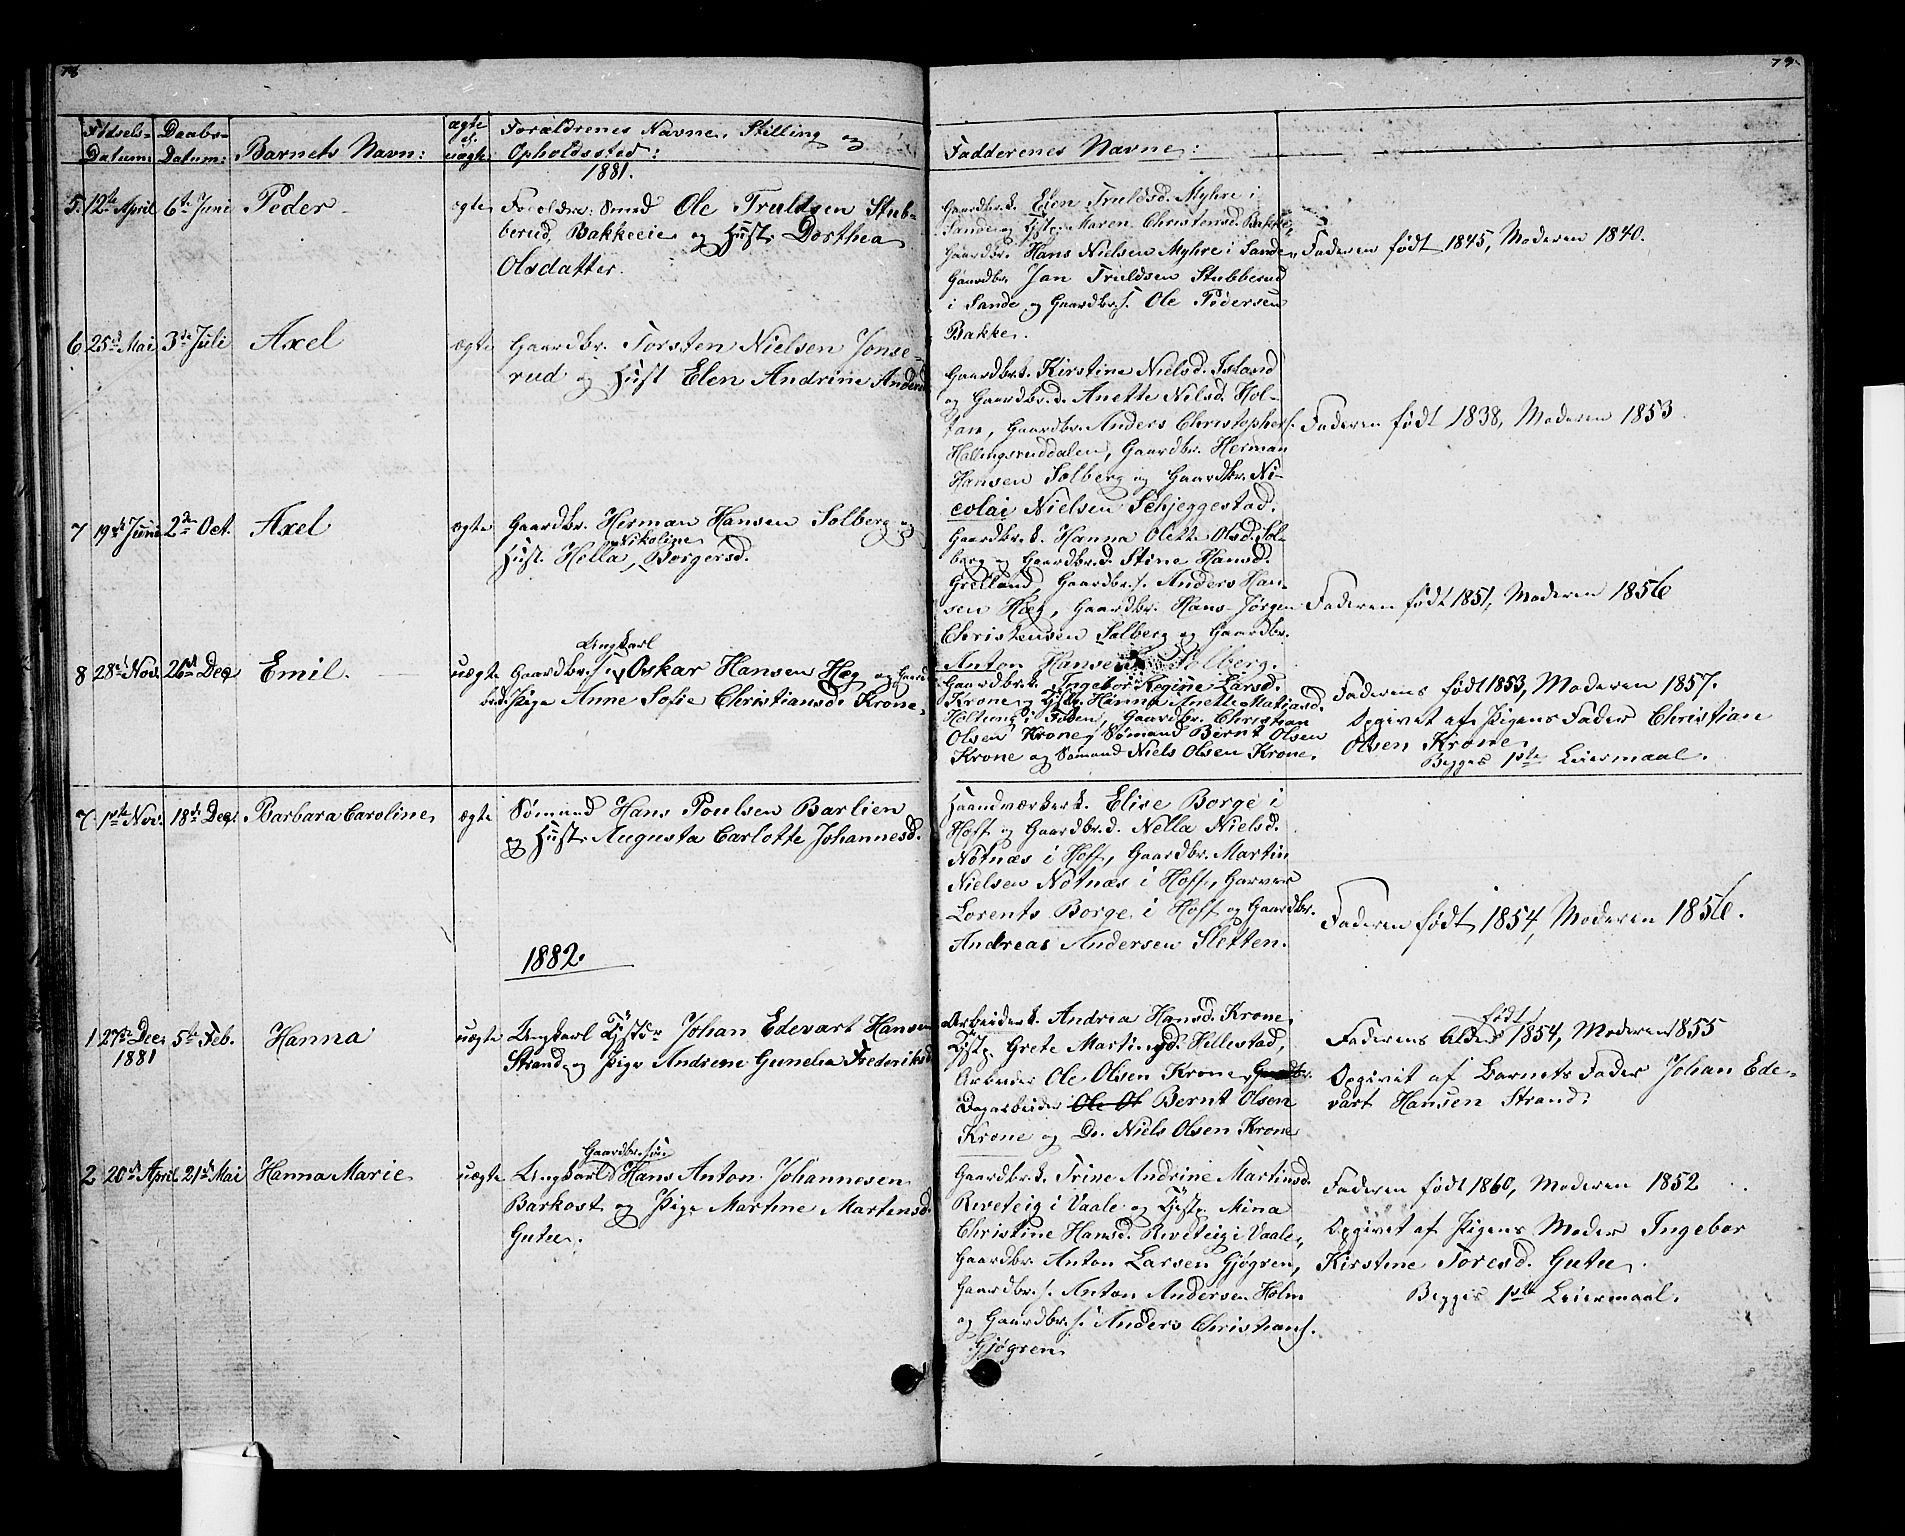 78
79
Fødsels-
Datum:
Daabs-
Datum:
Barnets Navn:
ægte
el.
uægte
Forældrenes Navne, Stilling og
Opholdssted:
Fadderenes Navne:
1881.
5. 12te April 6te Juni Peder ægte
Ole Truldsen Stub-
berud, Bakkeeie og Hust. Dorthea
Olsdatter.
Gaardbr.k. Elen Truldsd. Myhre i
Sande og Tjstp. Maren Christensd. Bakke,
Gaardbr. Hans Nielsen Myhre i Sande,
Gaardbr. Jan Truldsen Stubberud
i Sande og Gaardbr.s. Ole Pedersen
Bakke.
Faderen født 1845, Moderen 1840.
6 25de Mai 3de Juli Axel ægte
Gaardbr. Torsten Nielsen Jonse-
rud og Hust Elen Andrine Andersd
Gaardbr.k. Kirstine Nielsd. Island
og Gaardbr.d. Anette Nilsd. Hol-
tan, Gaardbr. Anders Christophers.
Hallingsruddalen, Gaardbr. Herman
Hansen Solberg og Gaardbr. Ni-
colai Nielsen Schjeggestad.
Faderen født 1838, Moderen 1853
7 19de Juni 2den Oct. Axel ægte
Gaardbr. Herman Hansen Solberg og
Nikoline
Hust. Hella, Borgersd.
Gaardbr.k. Hanna Olette Olsd. Sol-
berg og Gaardbr.d. Stine Hansd.
Grelland, Gaardbr.s. Anders Han-
sen Hæg, Gaardbr. Hans Jørgen
Christensen Solberg og Gaardbr.
Anton Hansen Solberg.
Faderen født 1851, Moderen 1856
8 28de Nov. 26de Dec Emil. uægte
Ungkarl
Gaardbr.s. Oskar Hansen Hæg og
Pige Anne Sofie Christiansd. Krone.
Gaardbr.k. Ingebor Regine Larsd.
Krone og Tjstp. Hanna Anette Matiasd.
Gaardbr. Christian
Olsen Krone, Sømand Bernt Olsen
Krone og Sømand Niels Olsen Krone.
Faderens født 1853, Moderen 1857.
Opgivet af Pigens Fader Christian
Olsen Krone
Begges 1ste Leiermaal.
7 1ste Nov. 18de Dec. Barbara Caroline, ægte
Sømand Hans Poulsen Barlien
og Hust. Augusta Carlotte Johannesd.
Haandværker k. Elise Borge i
Hoff og Gaardbr.d. Nella Nielsd.
Nøtnæs i Hoff, Gaardbr. Martin
Nielsen Nøtnæs i Hoff, Garver
Lorents Borge i Hoff og Gaardbr.
Andreas Andersen Sletten.
Faderen født 1854, Moderen 1856.
1882.
1 27de Dec. 5te Feb. Hanna uægte
1881
Ungkarl Tjstdr Johan Edevart Hansen
Strand og Pige Andrene Gunelia Frederiksd
Arbeider k. Andrea Hansd. Krone,
Tjstp. Grete Martinsd. Hillestad,
Arbeider Ole Olsen Krone, Gaardbr.
Dagarbeider Ole Ol Bernt Olsen
Krone og Do. Niels Olsen Krone
født
Faderens Alder 1854, Moderen 1855
Opgivet af Barnets Fader Johan Ede-
vart Hansen Strand.
2 20de April 21de Mai Hanna Marie uægte
Gaardbr.søn
Ungkarl Hans Anton Johannesen
Barkost og Pige Martine Martinsd.
Gutu.
Gaardbr.k. Trine Andrine Martinsd.
Reveteig i Vaale og Tjstp. Mina
Christine Hansd. Reveteig i Vaale,
Gaardbr. Anton Larsen Gjøgren,
Gaardbr.s. Anton Andersen Holm
og Gaardbr.s. Anders Christians.
Gjøgren
Faderen født 1860, Moderen 1852
Opgivet af Pigens Moder Ingebor
Kirstine Toresd. Gutu.
Begges 1ste Leiermaal.